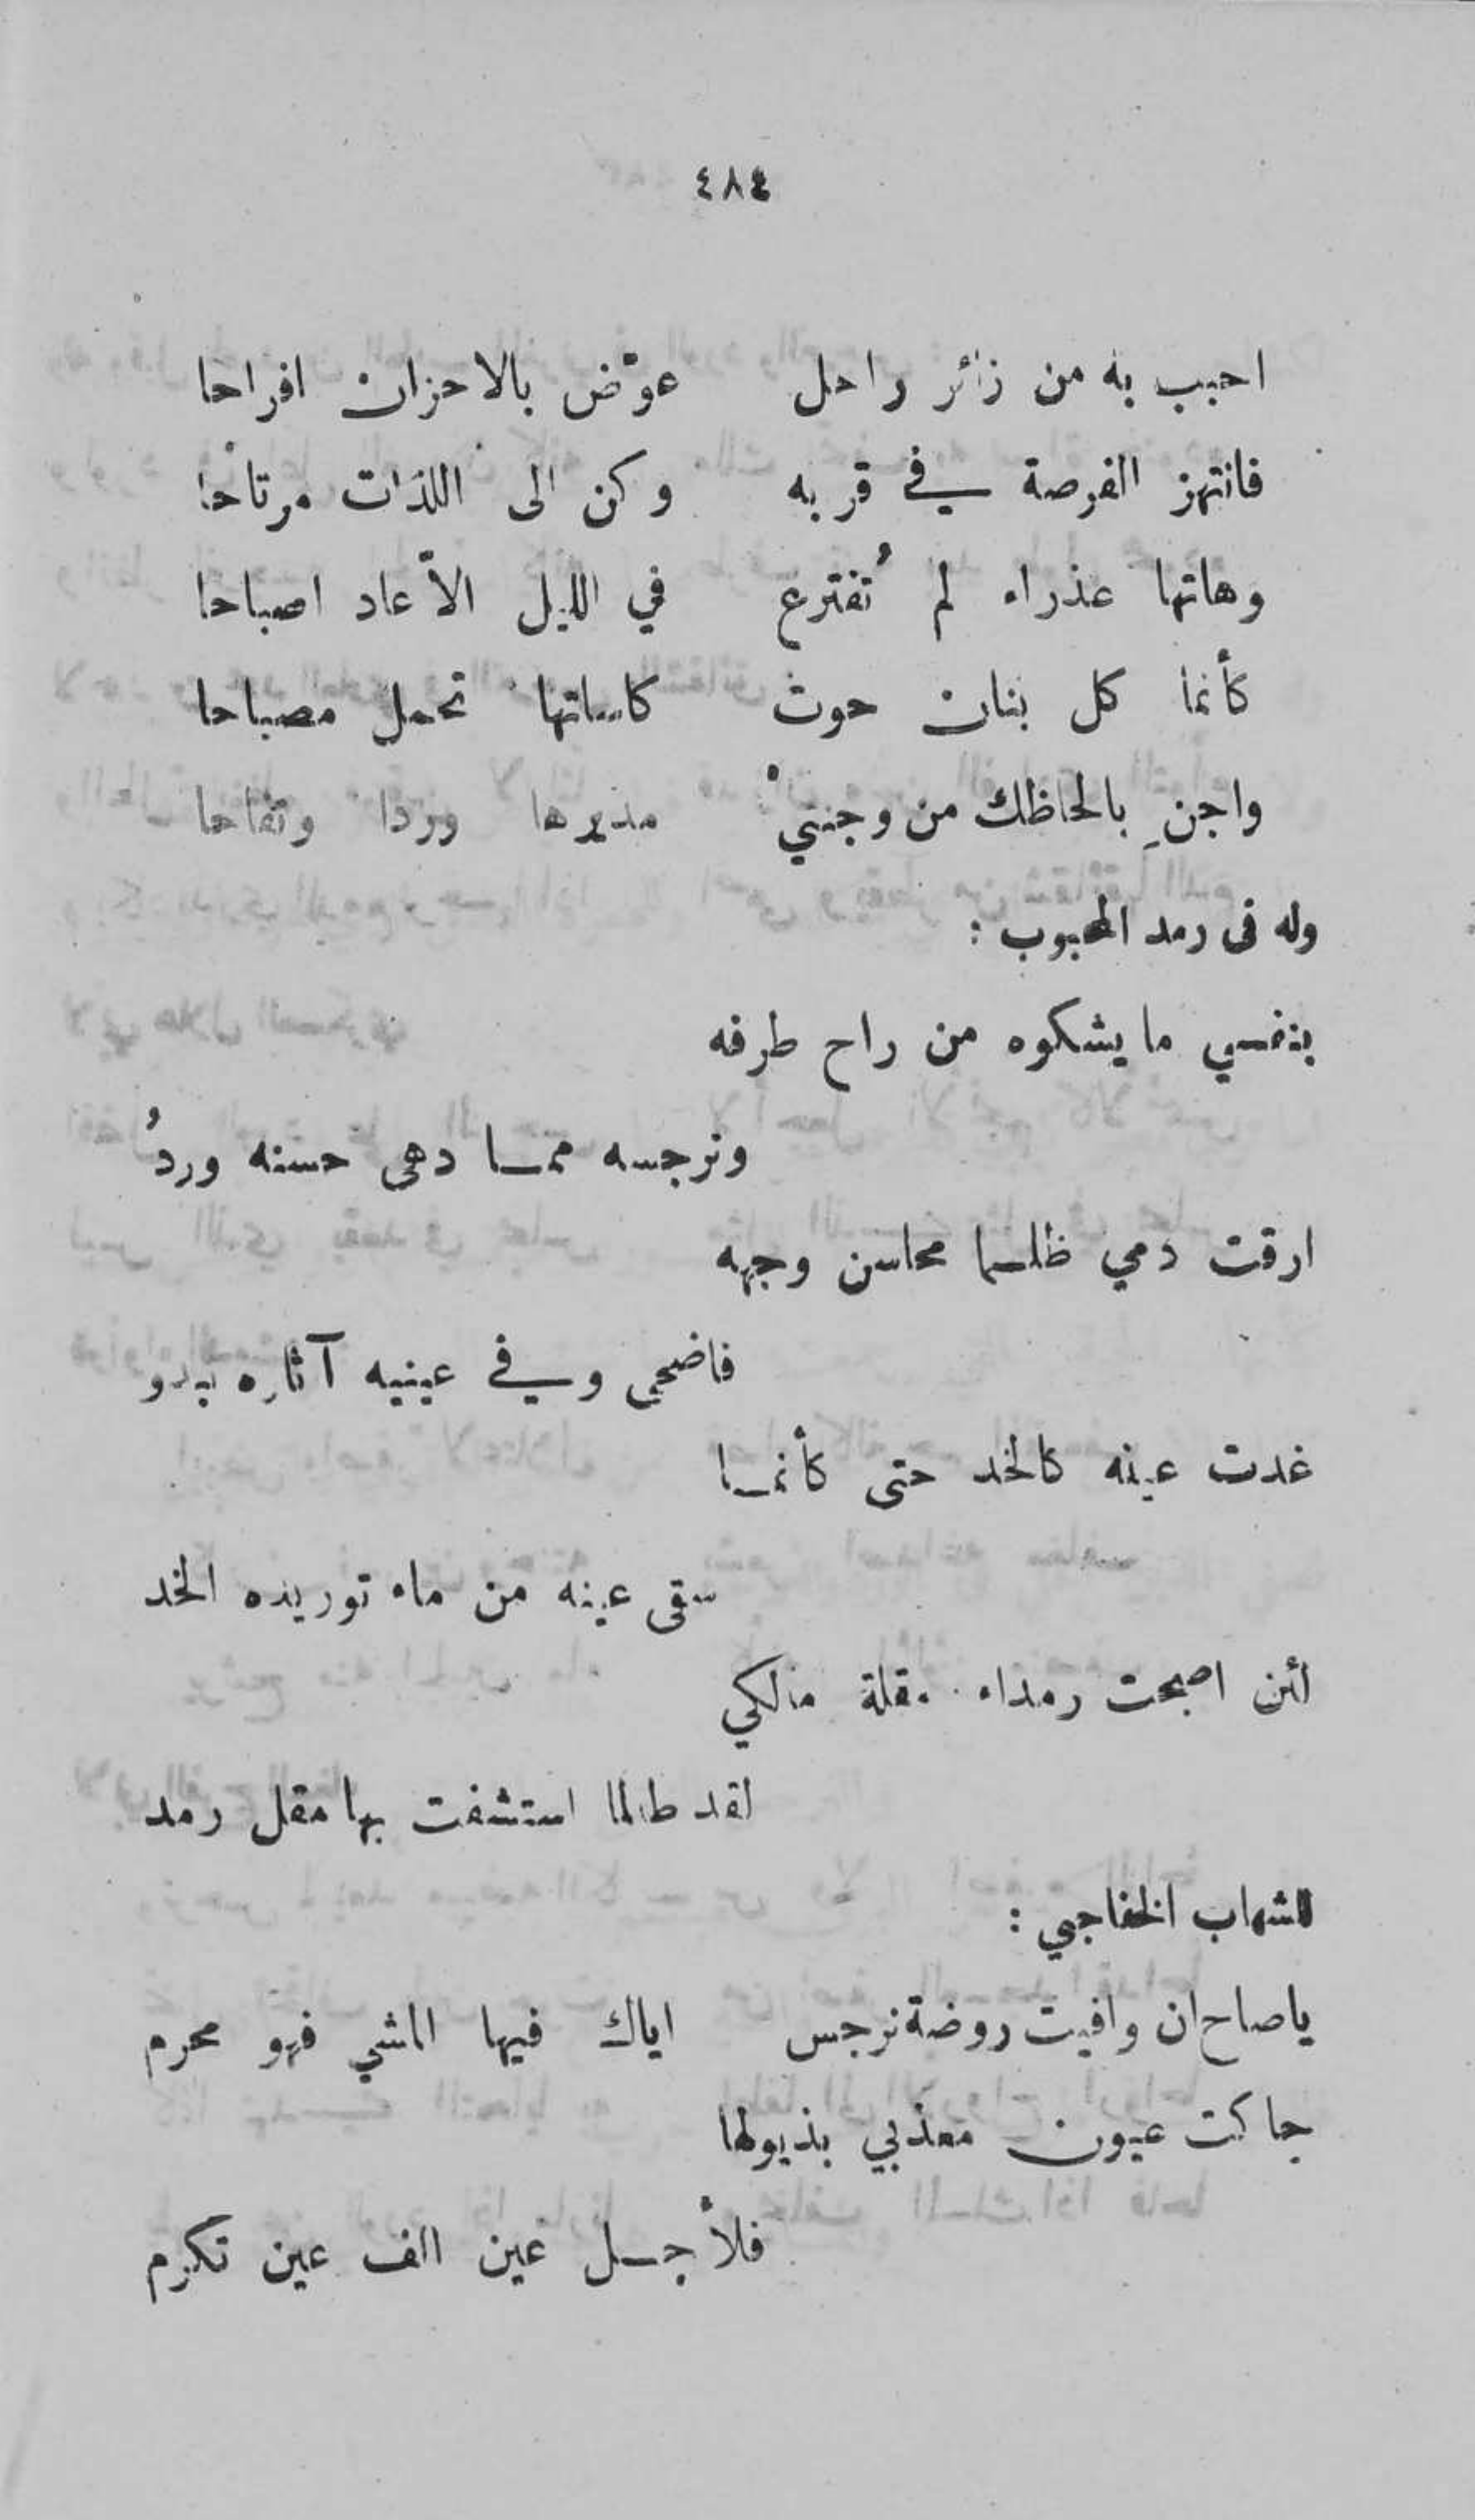 ٤٨٤
احبب به من زائر راحل عوّض بالاحزان افراحا
فانتهز الفرصة في قربه وكن الى اللذات مرتاحا
وهاتها عذراء لم تُفترع في الليل الاّ عاد اصباحا
كأنما كل بنان حوت كاساتها تحمل مصباحا
واجنِ بالحاظك من وجنتيْ مديرها وردا وتفاحا
وله في رمد المحبوب :
بنفسي ما يشكوه من راح طرفه
ونرجسه مما دهى حسنه وردُ
ارقت دمي ظلما محاسن وجهه
فاضحى وفي عينيه آثاره يبدو
غدت عينه كالخد حتى كأنما
سقى عينه من ماء توريده الخد
لئن اصبحت رمداء مقلة مالكي
لقد طالما استشفت بها مقل رمد
للشهاب الخفاجي :
ياصاح ان وافيت روضة نرجس اياك فيها المشي فهو محرم
حاكت عيون معذبي بذيولها
فلأجل عين الف عين تكرم